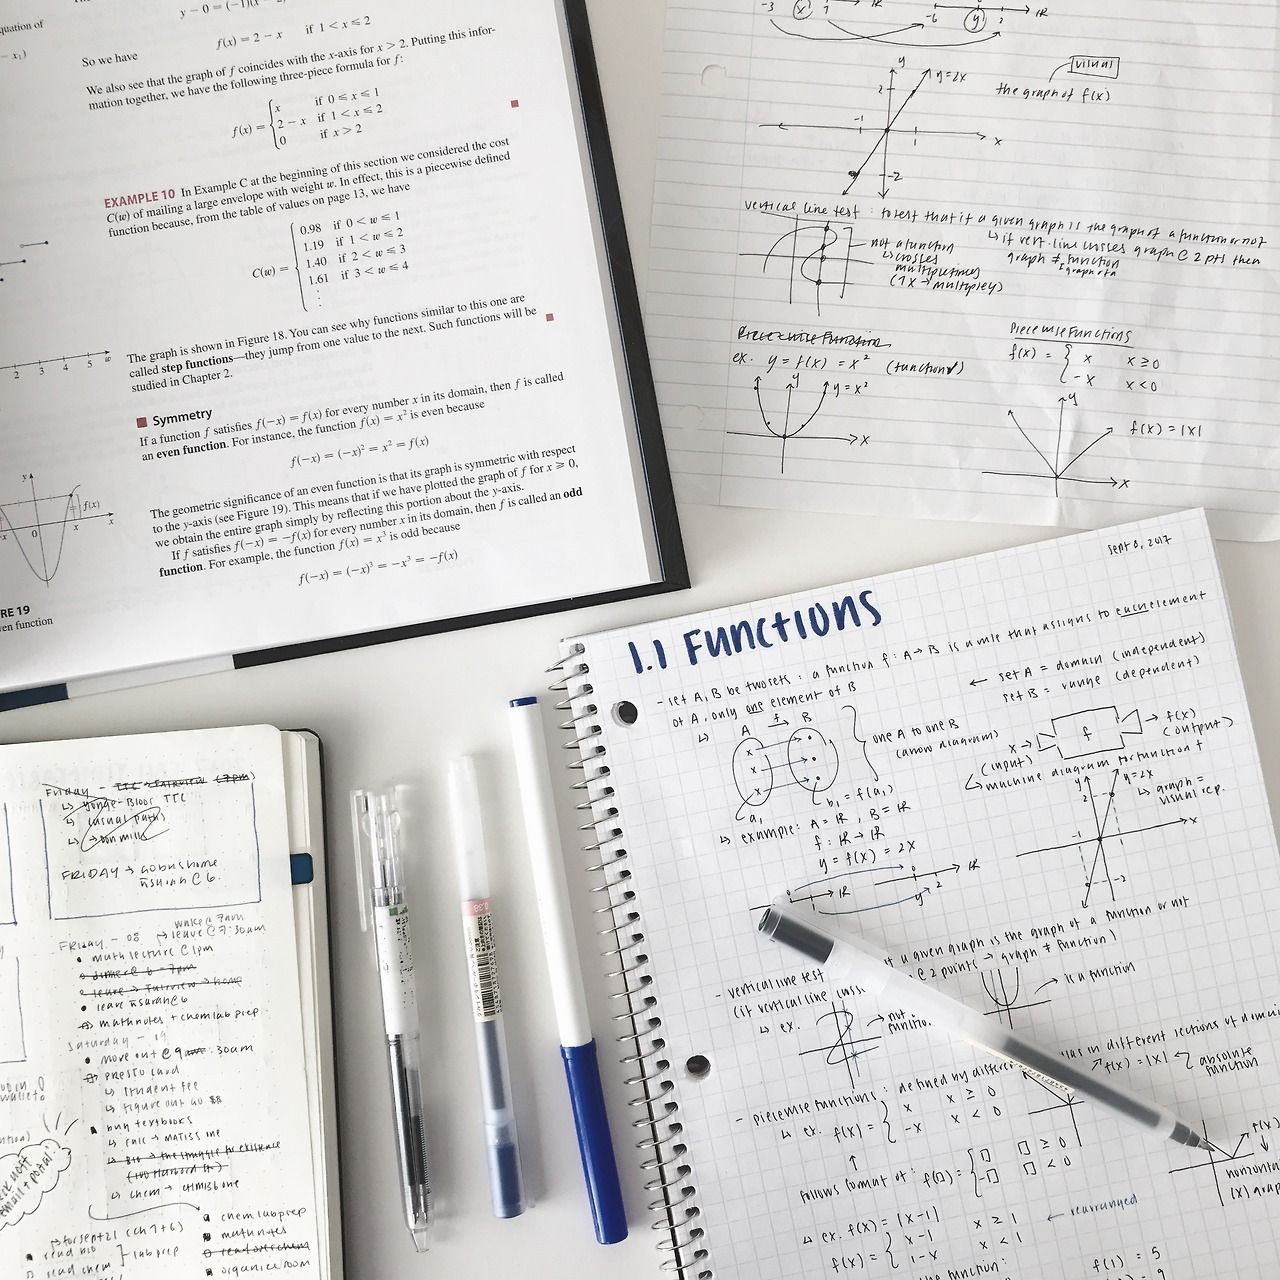 y − 0 = (−1)(x −
So we have
f(x) = 2 − x if 1 < x ⩽ 2
We also see that the graph of f coincides with the x-axis for x > 2. Putting this infor-
mation together, we have the following three-piece formula for f:
f(x) = { x if 0 ⩽ x ⩽ 1
2 − x if 1 < x ⩽ 2
0 if x > 2
EXAMPLE 10 In Example C at the beginning of this section we considered the cost
C(w) of mailing a large envelope with weight w. In effect, this is a piecewise defined
function because, from the table of values on page 13, we have
C(w) = { 0.98 if 0 < w ⩽ 1
1.19 if 1 < w ⩽ 2
1.40 if 2 < w ⩽ 3
1.61 if 3 < w ⩽ 4
⋮
The graph is shown in Figure 18. You can see why functions similar to this one are
called step functions—they jump from one value to the next. Such functions will be
studied in Chapter 2.
Symmetry
If a function f satisfies f(−x) = f(x) for every number x in its domain, then f is called
an even function. For instance, the function f(x) = x² is even because
f(−x) = (−x)² = x² = f(x)
The geometric significance of an even function is that its graph is symmetric with respect
to the y-axis (see Figure 19). This means that if we have plotted the graph of f for x ⩾ 0,
we obtain the entire graph simply by reflecting this portion about the y-axis.
If f satisfies f(−x) = −f(x) for every number x in its domain, then f is called an odd
function. For example, the function f(x) = x³ is odd because
f(−x) = (−x)³ = −x³ = −f(x)
quation of
− x₁)
2 3 4 5 w
y
f(x)
0 x x
RE 19
en function
-3 x 7 IR
-6 y 2 IR
y y=2x
2
-1 1 x
-2
visual
the graph of f(x)
vertical line test : to test that if a given graph is the graph of a function or not
↳ if vert. line crosses graph @ 2 pts then
graph ≠ function
not a function
↳ crosses
multiple times
(1X → multiple y)
Piecewise Function
ex. y = f(x) = x² (function✓)
y y=x²
x
Piecewise Functions
f(x) = { x x≥0
-x x<0
y
f(x) = |x|
x
Sept 8, 2017
1.1 FUNCTIONS
- set A, B be two sets : a function f: A→B is a rule that assigns to each element
of A, only one element of B
← set A = domain (independent)
set B = range (dependent)
A f→ B
one A to one B
(arrow diagram)
a₁ b₁ = f(a₁)
x → (input) f → f(x) (output)
↳ machine diagram for function f
↳ example: A = IR, B = IR
f: IR → IR
y = f(x) = 2x
y y=2x
↳ graph =
visual rep.
2
-1 x
-2
0 IR
0 2 IR
y
a given graph is the graph of a function or not
@ 2 points → graph ≠ function)
- vertical line test
(if vertical line
↳ ex.
→ not
→ is a function
in different sections of
- piecewise functions : defined by
↳ ex. f(x) = { x x ≥ 0
-x x < 0
f(x) = |x| absolute
function
follows format of: f(□) = { □ □ ≥ 0
-□ □ < 0
↳ ex. f(x) = |x-1|
f(x) = { x-1 x ≥ 1
1-x x < 1
← rearranged
f(x)
horizontal
|x|
function:
f(1) = 5
Friday - TTC → Fairview (7pm)
↳ Yonge-Bloor TTC
↳ casual paths
↳ → Don mills
FRIDAY → go bus home
@ 6.
wake @ 7am
Friday - 08 → leave @ 7:30am
math lecture @ 1pm
dinner @ 6 - 7pm
leave → Fairview → home
leave @ 6
mathnotes + chem lab prep
Saturday - 09
move out @ 9am :30am
PRESTO card
↳ student fee
↳ figure out GO $$
buy textbooks
↳ bio → the struggle for existence
↳ chem →
for sept 21 (ch 1+6)
read bio
read chem
} lab prep
chem lab prep
mathnotes
read over chem
organize room
email + portal!
0.38